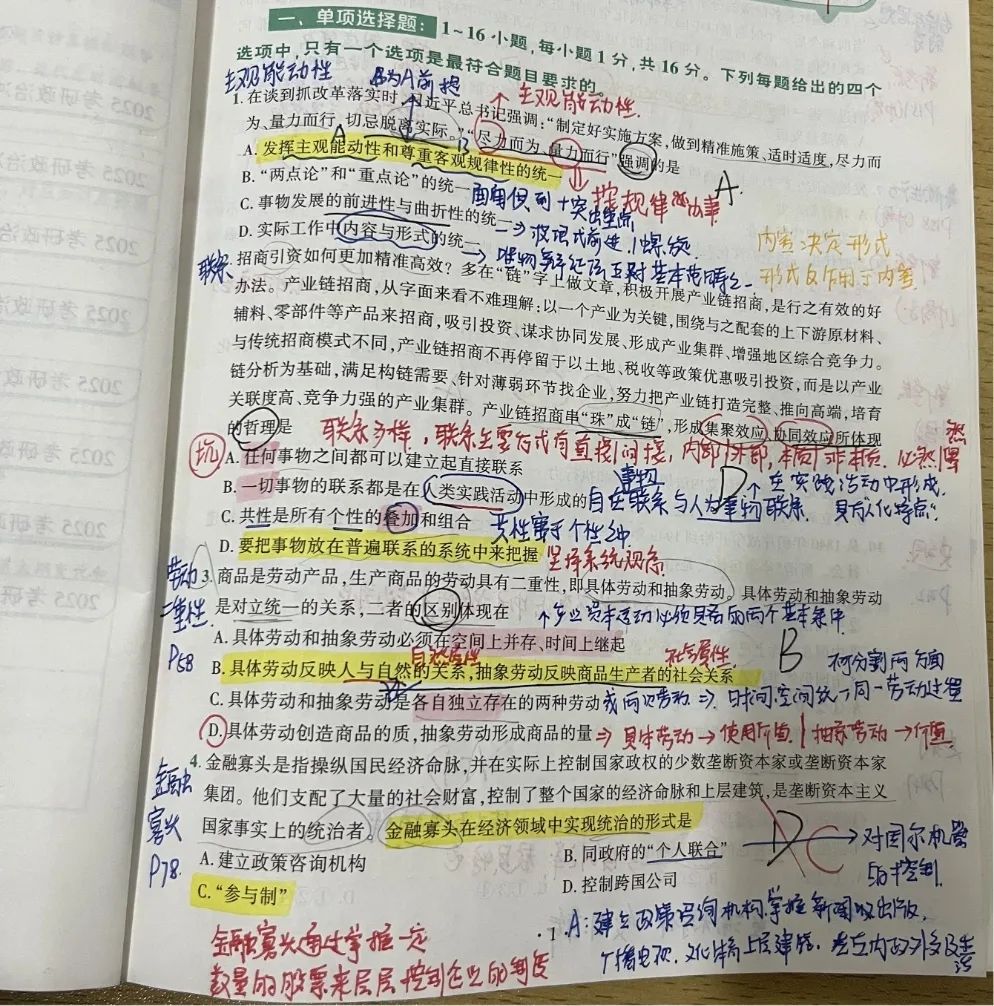 一、单项选择题：1~16小题，每小题1分，共16分。下列每题给出的四个
选项中，只有一个选项是最符合题目要求的。
主观能动性 B为A前提 主观能动性.
1. 在谈到抓改革落实时，习近平总书记强调：“制定好实施方案，做到精准施策、适时适度，尽力而
为、量力而行，切忌脱离实际。”“尽力而为、量力而行”强调的是
A B
A. 发挥主观能动性和尊重客观规律性的统一
A.
B. “两点论”和“重点论”的统一
按规律办事
C. 事物发展的前进性与曲折性的统一
D. 实际工作中内容与形式的统一
内容决定形式
形式反作用于内容
联系
招商引资如何更加精准高效？多在“链”字上做文章，积极开展产业链招商，是行之有效的好
办法。产业链招商，从字面来看不难理解：以一个产业为关键，围绕与之配套的上下游原材料、
辅料、零部件等产品来招商，吸引投资、谋求协同发展、形成产业集群、增强地区综合竞争力。
与传统招商模式不同，产业链招商不再停留于以土地、税收等政策优惠吸引投资，而是以产业
链分析为基础，满足构链需要、针对薄弱环节找企业，努力把产业链打造完整、推向高端，培育
关联度高、竞争力强的产业集群。产业链招商串“珠”成“链”，形成集聚效应、协同效应所体现
的哲理是
联系多样，联系主要方式有直接间接，内部外部，本质非本质.必然偶然
坑
A. 任何事物之间都可以建立起直接联系
B. 一切事物的联系都是在人类实践活动中形成的
自在联系与人为事物联系.
事物
D
在实践活动中形成.
具有“人化特点”.
C. 共性是所有个性的叠加和组合
共性寓于个性之中
D. 要把事物放在普遍联系的系统中来把握
坚持系统观点
劳动二重性
P58
3. 商品是劳动产品，生产商品的劳动具有二重性，即具体劳动和抽象劳动。具体劳动和抽象劳动
是对立统一的关系，二者的区别体现在
产业资本运动必须具备的两个基本条件
A. 具体劳动和抽象劳动必须在空间上并存、时间上继起
自然属性 社会属性
B. 具体劳动反映人与自然的关系，抽象劳动反映商品生产者的社会关系
B
不可分割两方面
C. 具体劳动和抽象劳动是各自独立存在的两种劳动
或两次劳动⇒时间.空间统一同一劳动过程
D. 具体劳动创造商品的质，抽象劳动形成商品的量
⇒具体劳动→使用价值 抽象劳动→价值
金融寡头
P78.
4. 金融寡头是指操纵国民经济命脉，并在实际上控制国家政权的少数垄断资本家或垄断资本家
集团。他们支配了大量的社会财富，控制了整个国家的经济命脉和上层建筑，是垄断资本主义
国家事实上的统治者。金融寡头在经济领域中实现统治的形式是
A. 建立政策咨询机构
B. 同政府的“个人联合”
D C
对国家机器的控制.
C. “参与制”
D. 控制跨国公司
金融寡头通过掌握一定
数量的股票来层层控制企业的制度
· 1
A：建立政策咨询机构.掌握新闻出版，
广播电视.文化体育上层建筑.左右内政外交及生活